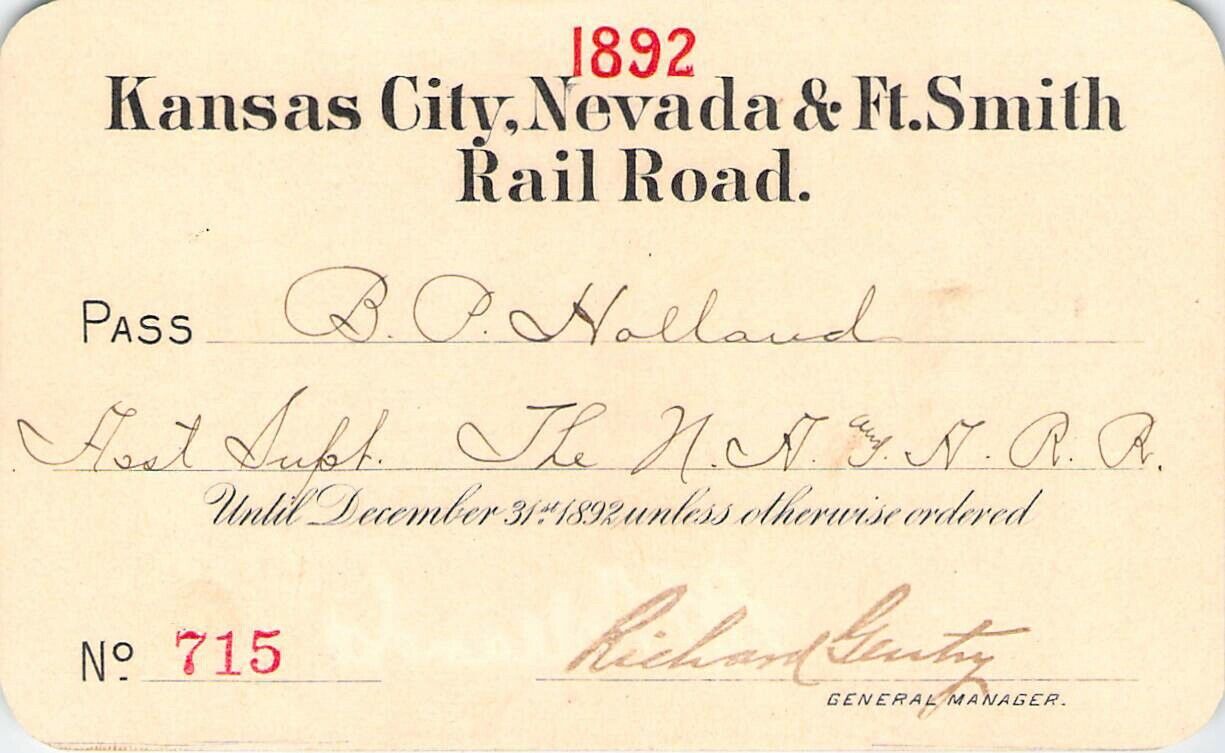 1892
Kansas City, Nevada & Ft. Smith
Rail Road.
PASS B. P. Holland
Asst Supt. The N. H. and N. R. R.
Until December 31st 1892 unless otherwise ordered
No. 715 Richard Gentry
GENERAL MANAGER.